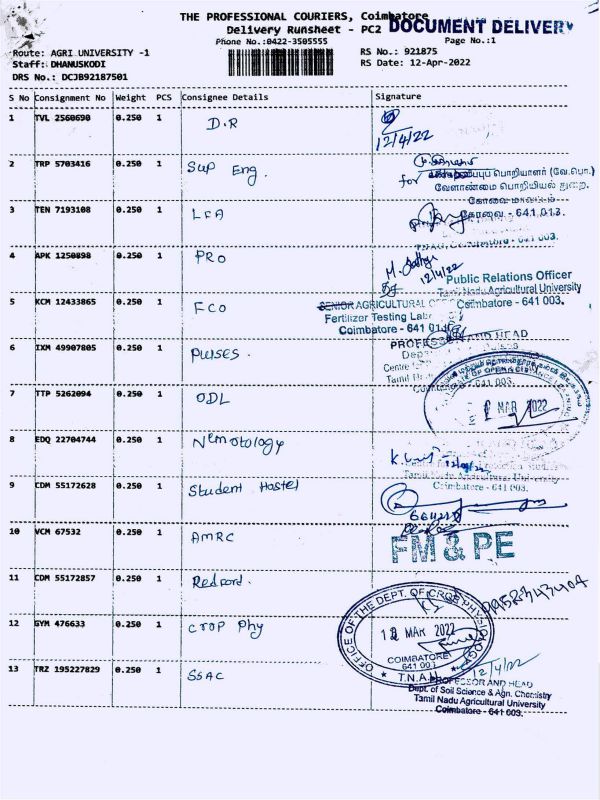 THE PROFESSIONAL COURIERS, Coimbatore
Delivery Runsheet - PC2
DOCUMENT DELIVERY
Phone No.:0422-3505555
Page No.:1
Route: AGRI UNIVERSITY -1
RS No.: 921875
Staff: DHANUSKODI
RS Date: 12-Apr-2022
DRS No.: DCJB92187501
S No Consignment No Weight PCS Consignee Details Signature
1 TVL 2560690 0.250 1 D.R
12/4/22
2 TRP 5703416 0.250 1 Sup Eng.
for பொறியாளர் (வே.பொ.)
வேளாண்மை பொறியியல் துறை,
3 TEN 7193108 0.250 1 LFA
கோவை - 641 013.
4 APK 1250898 0.250 1 PRO
12/4/22
Public Relations Officer
Tamil Nadu Agricultural University
Coimbatore - 641 003.
5 KCM 12433865 0.250 1 FCO
SENIOR AGRICULTURAL
Fertilizer Testing
Coimbatore - 641
PROFESSOR AND HEAD
6 IXM 49907805 0.250 1 Pulses.
Centre
Tamil
641 003.
7 TTP 5262094 0.250 1 ODL
MAR 2022
8 EDQ 22704744 0.250 1 Nematology
Tamil Nadu Agricultural University
Coimbatore - 641 003.
9 CDM 55172628 0.250 1 Student Hostel
10 VCM 67532 0.250 1 AMRC
FM & PE
11 CDM 55172857 0.250 1
12 GYM 476633 0.250 1 crop Phy
OFFICE OF THE DEPT. OF CROP PHYSIOLOGY
MAR 2022
COIMBATORE
641 003
T.N.A.U
13 TRZ 195227829 0.250 1 SSAC
12/4/22
PROFESSOR AND HEAD
Dept. of Soil Science & Agri. Chemistry
Tamil Nadu Agricultural University
Coimbatore - 641 003.